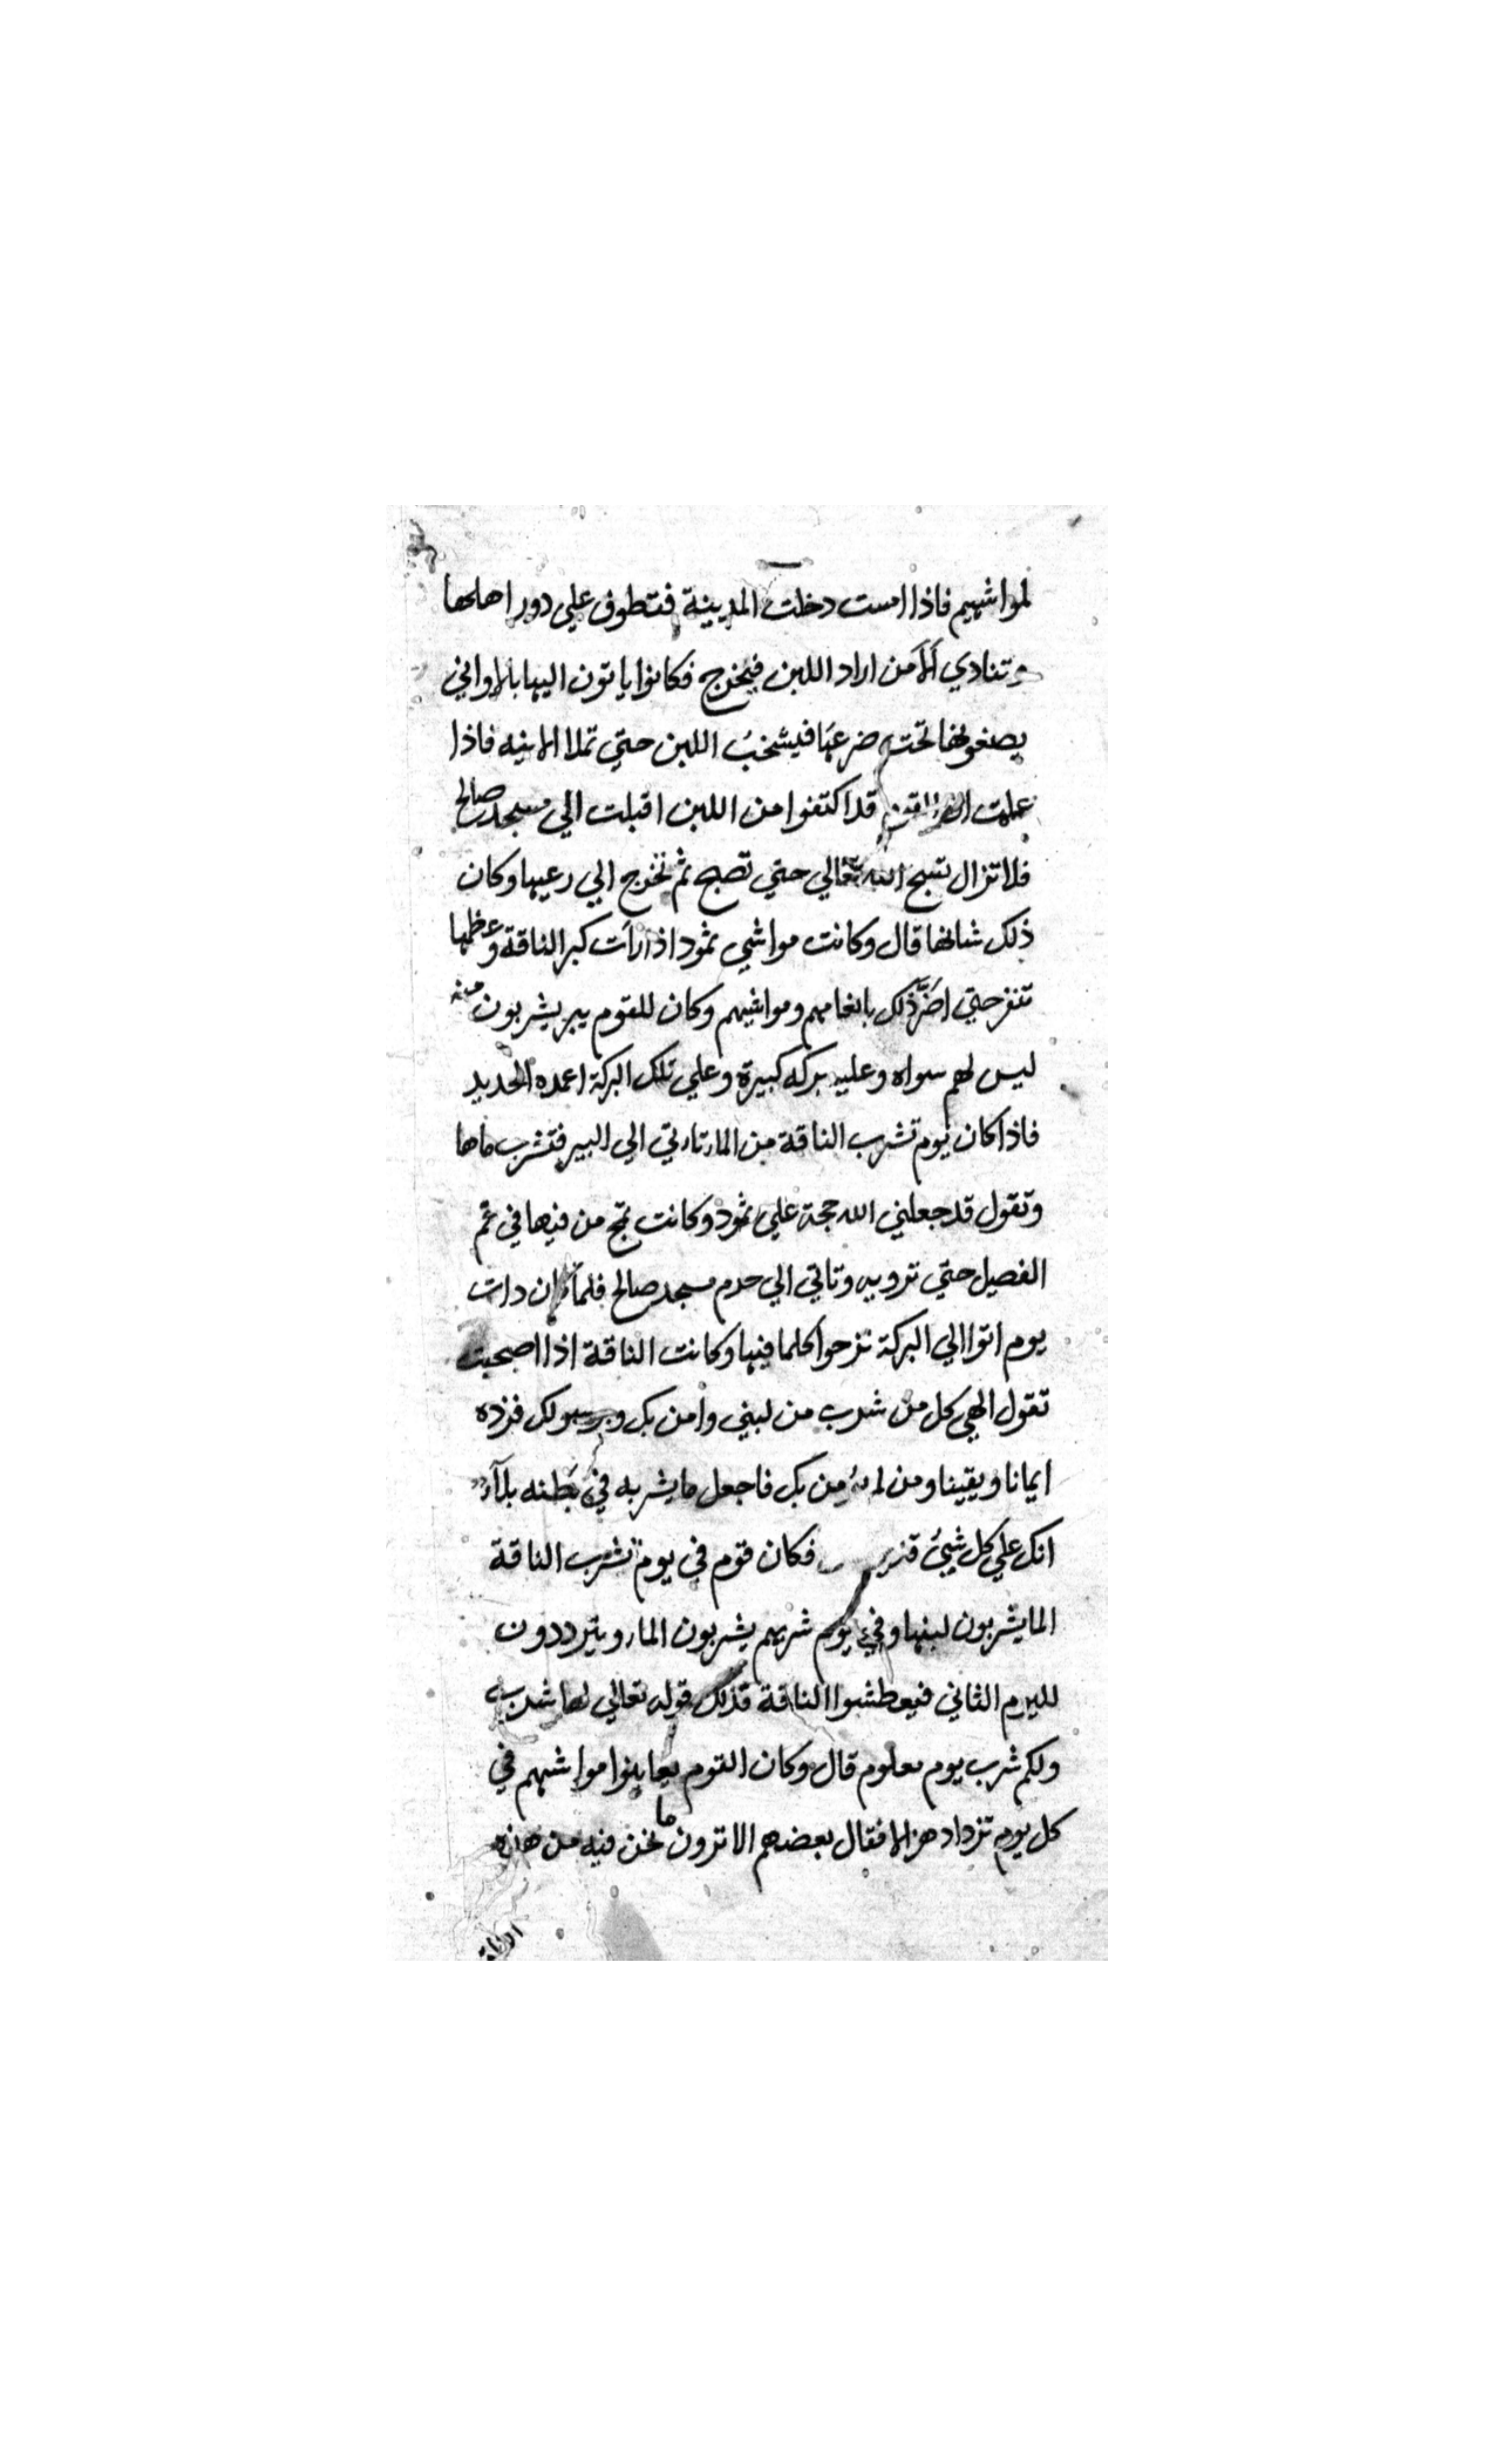 لمواشيهم فاذا امست دخلت المدينة فتطوف علي دور اهلها
وتنادي ألا من اراد اللبن فيخرج فكانوا ياتون اليها بالاواني
يصغونها تحت ضرعها فيشخب اللبن حتي تملا الانيه فاذا
علمت قد اكتفوا من اللبن اقبلت الي مسجد صالح
فلا تزال تسبح الله تعالي حتي تصبح ثم تخرج الي رعيها وكان
ذلك شانها قال وكانت مواشي ثمود اذا رات كبر الناقة وعظمها
تنفر حتي اضر ذلك بانعامهم ومواشيهم وكان للقوم بير يشربون منه
ليس لهم سواه وعليه بركه كبيرة وعلي تلك البركة اعمده الحديد
فاذا كان يوم تشرب الناقة من الما تاتي الي البير فتشرب ماها
وتقول قد جعلني الله حجة علي ثمود وكانت تمج من فيها في فم
الفصيل حتي ترويه وتاتي الي حرم مسجد صالح فلما كان دات
يوم اتوا الي البركة نزحوا كلما فيها وكانت الناقة اذا اصبحت
تقول الهي كل من شرب من لبني وامن بك وبرسولك فزده
ايمانا ويقينا ومن لم يؤمن بك فاجعل ما يشربه في بطنه بلآء
انك علي كل شيئ قدير فكان قوم في يوم تشرب الناقة
الما يشربون لبنها وفي يوم شربهم يشربون الما ويترددون
لليوم الثاني فيعطشوا الناقة فذلك قوله تعالي لها شرب
ولكم شرب يوم معلوم قال وكان القوم يعاينوا مواشيهم في
كل يوم تزداد هزالا فقال بعضهم الا ترون ما نحن فيه من هذه